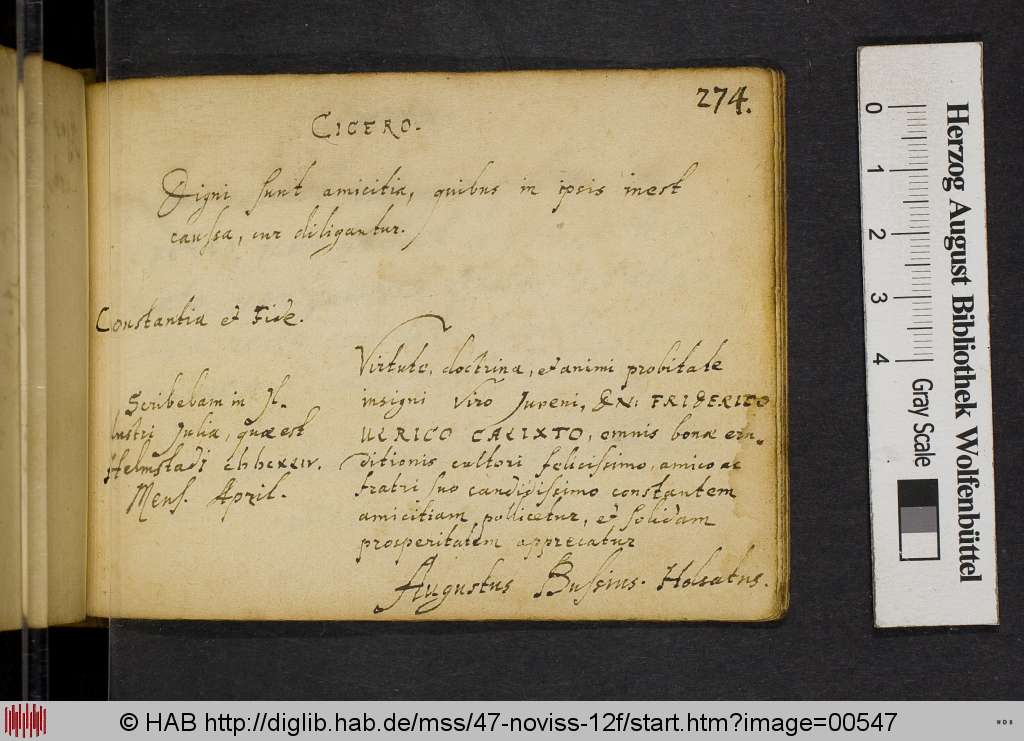 274.
CICERO.
Digni sunt amicitia, quibus in ipsis inest
caussa, cur diligantur.
Constantia et Fide.
Scribebam in Il-
lustri Julia, quæ est
Helmstadi
Mens. April.
Virtute, doctrina, et animi probitate
insigni Viro Juveni, DN: FRIDERICO
ULRICO CALIXTO, omnis bonæ eru-
ditionis cultori felicissimo, amico ac
fratri suo candidissimo constantem
amicitiam pollicetur, et solidam
prosperitatem apprecatur
Augustus Bussius. Holsatus.
Herzog August Bibliothek Wolfenbüttel
0 1 2 3 4 Gray Scale
© HAB http://diglib.hab.de/mss/47-noviss-12f/start.htm?image=00547